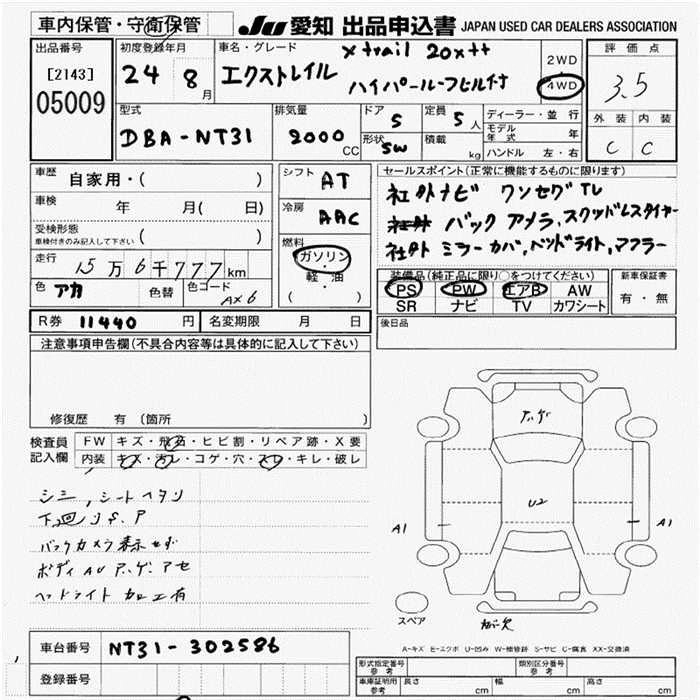 車内保管・守衛保管
JU 愛知 出品申込書 JAPAN USED CAR DEALERS ASSOCIATION
出品番号
[2143]
05009
初度登録年月
24 8月
車名・グレード
x trail 20xtt
エクストレイル
ハイパールーフレール付
2WD
4WD
評価点
3.5
外装 内装
C C
型式
DBA-NT31
排気量
2000 CC
ドア
5
定員
5人
形状
SW
積載
kg
ディーラー・並行
モデル年式 年
ハンドル 左・右
車歴 自家用・( )
車検 年 月( 日)
受検形態
車検付きのみ記入して下さい ( )
走行 15万6千777km
色 アカ 色替 色コード AX6
シフト AT
冷房 AAC
燃料
ガソリン
・軽・油
( )
セールスポイント(正常に機能するものに限ります)
社外ナビ ワンセグTV
社外 バックカメラ、スタッドレスタイヤ
社外 ミラーカバー、ヘッドライト、マフラー
装備品(純正品に限り○をつけてください)
PS PW エアB AW
SR ナビ TV カワシート
新車保証書
有・無
R券 11440 円 名変期限 月 日
後日品
注意事項申告欄(不具合内容等は具体的に記入して下さい)
修復歴 有 (箇所 )
検査員記入欄
FW キズ・飛石・ヒビ割・リペア跡・X要
内装 キズ・汚レ・コゲ・穴・スレ・キレ・破レ
シミ、シートヘタリ
下廻りS、P
バックカメラ表示せず
ボディAUアゲ、アセ
ヘッドライト加工有
U2
A1
A1
スペア
A-キズ E-エクボ U-凹み W-補修跡 S-サビ C-腐食 XX-交換済
車台番号 NT31-302586
登録番号
形式指定番号 参考
類別区分番号 参考
車庫証明用 参考 長さ cm 幅 cm 高さ cm